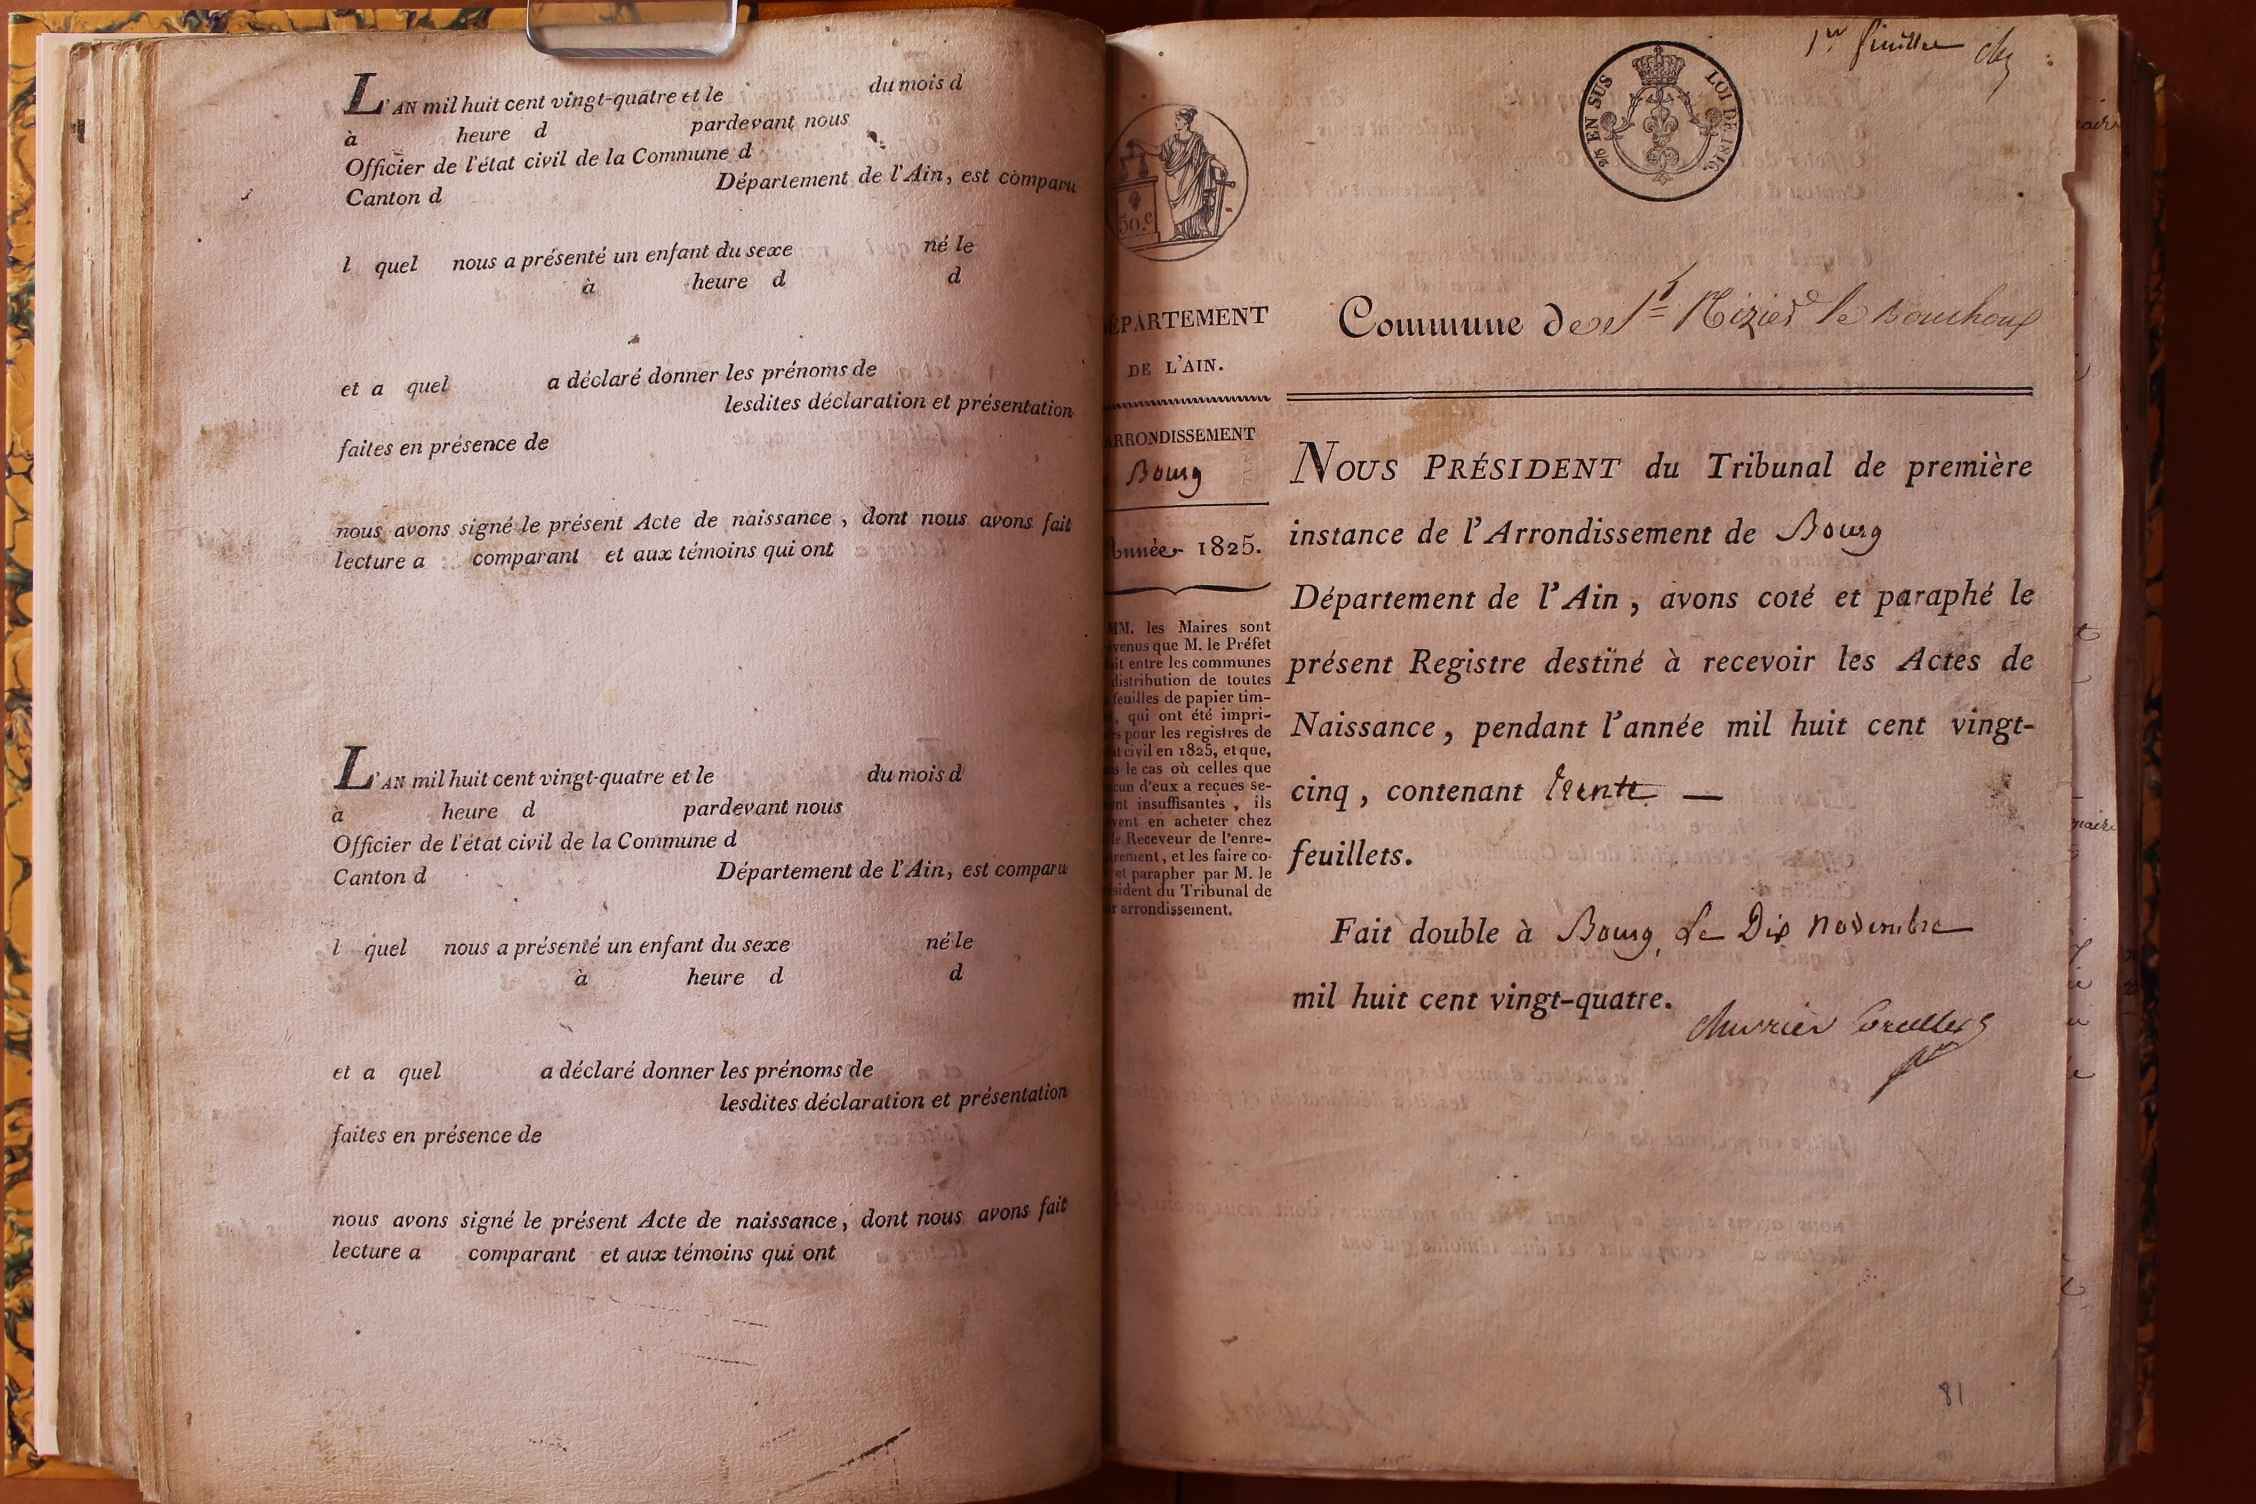 L'AN mil huit cent vingt-quatre et le du mois d
à heure d pardevant nous
Officier de l'état civil de la Commune d
Canton d Département de l'Ain, est comparu
l quel nous a présenté un enfant du sexe né le
à heure d d
et a quel a déclaré donner les prénoms de
lesdites déclaration et présentation
faites en présence de
nous avons signé le présent Acte de naissance, dont nous avons fait
lecture a comparant et aux témoins qui ont
L'AN mil huit cent vingt-quatre et le du mois d
à heure d pardevant nous
Officier de l'état civil de la Commune d
Canton d Département de l'Ain, est comparu
l quel nous a présenté un enfant du sexe né le
à heure d d
et a quel a déclaré donner les prénoms de
lesdites déclaration et présentation
faites en présence de
nous avons signé le présent Acte de naissance, dont nous avons fait
lecture a comparant et aux témoins qui ont
1er feuillet
EN SUS LOI DE 1816.
50.c
DÉPARTEMENT
DE L'AIN.
ARRONDISSEMENT
Bourg
Année 1825.
MM. les Maires sont
venus que M. le Préfet
it entre les communes
distribution de toutes
feuilles de papier tim-
, qui ont été impri-
s pour les registres de
t civil en 1825, et que,
s le cas où celles que
cun d'eux a reçues se-
nt insuffisantes, ils
vent en acheter chez
le Receveur de l'enre-
rement, et les faire co-
et parapher par M. le
sident du Tribunal de
r arrondissement.
Commune de St Nizier le Bouchoux
NOUS PRÉSIDENT du Tribunal de première
instance de l'Arrondissement de Bourg
Département de l'Ain, avons coté et paraphé le
présent Registre destiné à recevoir les Actes de
Naissance, pendant l'année mil huit cent vingt-
cinq, contenant trente —
feuillets.
Fait double à Bourg, Le Dix novembre
mil huit cent vingt-quatre.
81